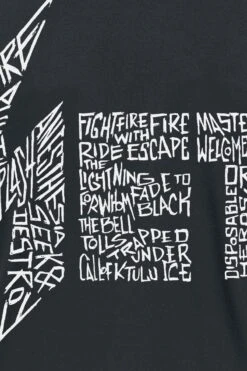 FIRE
ANESTHESIA
SEEK &
DESTROY
FIGHT FIRE FIRE
WITH
RIDE ESCAPE
THE
LIGHTNING
FOR WHOM FADE TO
BLACK
THE BELL
TOLLS TRAPPED
UNDER
CALL OF KTULU ICE
MASTE
WELCOME
DISPOSABLE
HEROES
OR